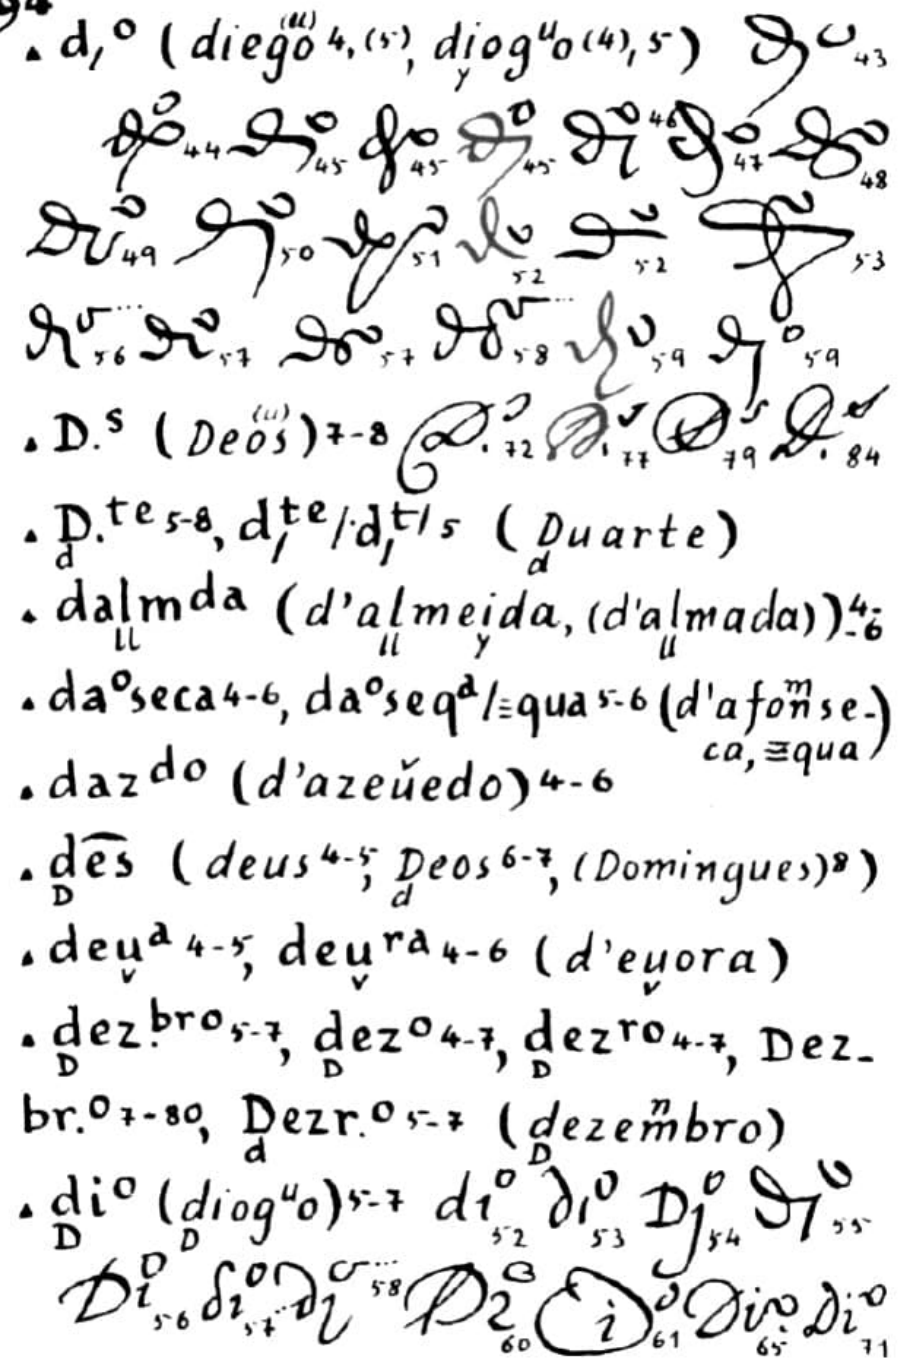 94
. d,º (diegö⁽ᵘ⁾ 4, (5), diogᵘo (4), 5) 43
y
44 45 45 45 46 47 48
49 50 51 52 52 53
56 57 57 58 59 59
. D.ˢ (Deos⁽ᵘ⁾) 7-8 72 77 79 84
. D.ᵗᵉ 5-8, d,ᵗᵉ/.d,ᵗ/ 5 (Duarte)
d d
. dalmᵈᵃ (d'almeida, (d'almada)) 4-6
ll ll y ll
. daºseca 4-6, daºseqᵃ/≡qua 5-6 (d'afonᵐse-
ca, ≡qua)
. dazᵈᵒ (d'azeǔedo) 4-6
. dēs (deus 4-5, Deos 6-7, (Domingues) 8)
D d
. deuᵃ 4-5, deuʳᵃ 4-6 (d'euora)
v v v
. dez.ᵇʳᵒ 5-7, dezº 4-7, dezʳᵒ 4-7, Dez-
D D D
br.º 7-80, Dezr.º 5-7 (dezemⁿbro)
d D
. diº (diogᵘo) 5-7 diº 52 diº 53 Djº 54 55
D D
Diº 56 diº 57 58 60 iº 61 Diº 65 Diº 71